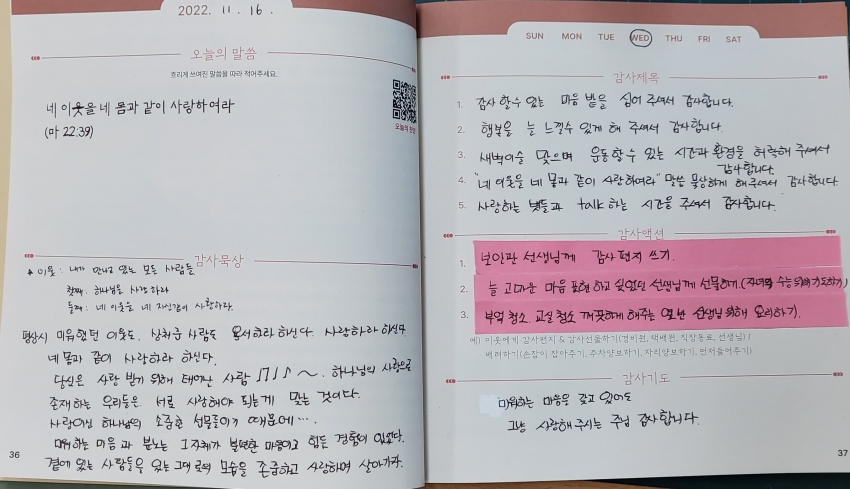 2022. 11. 16.
오늘의 말씀
흐리게 쓰여진 말씀을 따라 적어주세요.
네 이웃을 네 몸과 같이 사랑하여라
(마 22:39)
오늘의 찬양
감사묵상
* 이웃 : 내가 만나고 있는 모든 사람들
첫째 : 하나님을 사랑하라
둘째 : 네 이웃을 네 자신같이 사랑하라.
평상시 미워했던 이웃도, 상처준 사람도 용서하라 하신다. 사랑하라 하신다
네 몸과 같이 사랑하라 하신다.
당신은 사랑 받기 위해 태어난 사람 ♪♪♪~. 하나님의 사랑으로
존재하는 우리들은 서로 사랑해야 되는게 맞는 것이다.
사람이신 하나님의 소중한 선물들이기 때문에….
미워하는 마음과 분노는 그 자체가 불편한 마음이고 힘든 경험이 있었다.
곁에 있는 사람들을 있는 그대로의 모습을 존중하고 사랑하며 살아가자.
36
SUN MON TUE WED THU FRI SAT
감사제목
1. 감사 할수 있는 마음 밭을 심어 주셔서 감사합니다.
2. 행복을 늘 느낄수 있게 해 주셔서 감사합니다.
3. 새벽이슬 맞으며 운동할수 있는 시간과 환경을 허락해 주셔서
감사합니다.
4. "네 이웃을 네 몸과 같이 사랑하여라" 말씀 묵상하게 해주셔서 감사합니다.
5. 사랑하는 벗들과 talk 하는 시간을 주셔서 감사합니다.
감사액션
1. 선생님께 감사 편지 쓰기.
2. 늘 고마운 마음 표현 하고 싶었던 선생님께 선물하기. (자녀의 수능 위해 기도하기)
3. 부엌 청소. 교실 청소 깨끗하게 해주는 선생님 위해 요리하기).
예) 이웃에게 감사편지 & 감사선물하기(경비원, 택배원, 직장동료, 선생님) /
배려하기(손잡이 잡아주기, 주차양보하기, 자리양보하기, 먼저들어주기)
감사기도
미워하는 마음을 갖고 있어도
그냥 사랑해 주시는 주님 감사합니다.
37